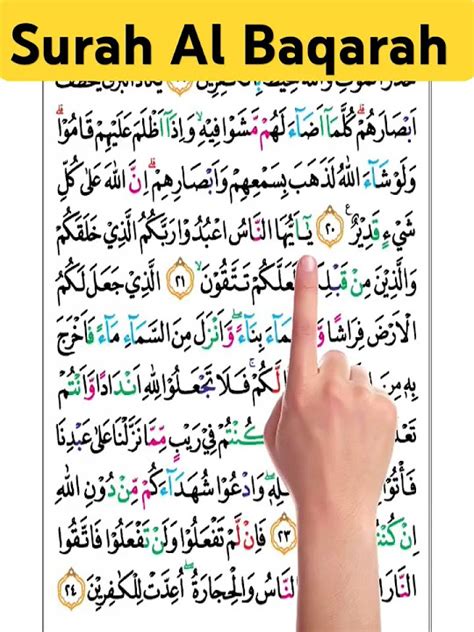 Surah Al Baqarah
حَذَرَ الْمَوْتِ وَاللّٰهُ مُحِيْطٌۢ بِالْكٰفِرِيْنَ ١٩ يَكَادُ الْبَرْقُ يَخْطَفُ
اَبْصَارَهُمْ ۗ كُلَّمَآ اَضَآءَ لَهُمْ مَّشَوْا فِيْهِ ۙ وَاِذَآ اَظْلَمَ عَلَيْهِمْ قَامُوْا ۗ
وَلَوْ شَآءَ اللّٰهُ لَذَهَبَ بِسَمْعِهِمْ وَاَبْصَارِهِمْ ۗ اِنَّ اللّٰهَ عَلٰى كُلِّ
شَيْءٍ قَدِيْرٌ ࣖ ٢٠ يٰٓاَيُّهَا النَّاسُ اعْبُدُوْا رَبَّكُمُ الَّذِيْ خَلَقَكُمْ
وَالَّذِيْنَ مِنْ قَبْلِكُمْ لَعَلَّكُمْ تَتَّقُوْنَ ۙ ٢١ الَّذِيْ جَعَلَ لَكُمُ
الْاَرْضَ فِرَاشًا وَّالسَّمَآءَ بِنَآءً ۖ وَّاَنْزَلَ مِنَ السَّمَآءِ مَآءً فَاَخْرَجَ
بِهٖ مِنَ لَّكُمْ ۚ فَلَا تَجْعَلُوْا لِلّٰهِ اَنْدَادًا وَّاَنْتُمْ
كُنْتُمْ فِيْ رَيْبٍ مِّمَّا نَزَّلْنَا عَلٰى عَبْدِنَا
فَأْتُوْا وَادْعُوْا شُهَدَآءَكُمْ مِّنْ دُوْنِ اللّٰهِ
اِنْ كُنْتُمْ ٢٣ فَاِنْ لَّمْ تَفْعَلُوْا وَلَنْ تَفْعَلُوْا فَاتَّقُوا
النَّارَ النَّاسُ وَالْحِجَارَةُ ۖ اُعِدَّتْ لِلْكٰفِرِيْنَ ٢٤